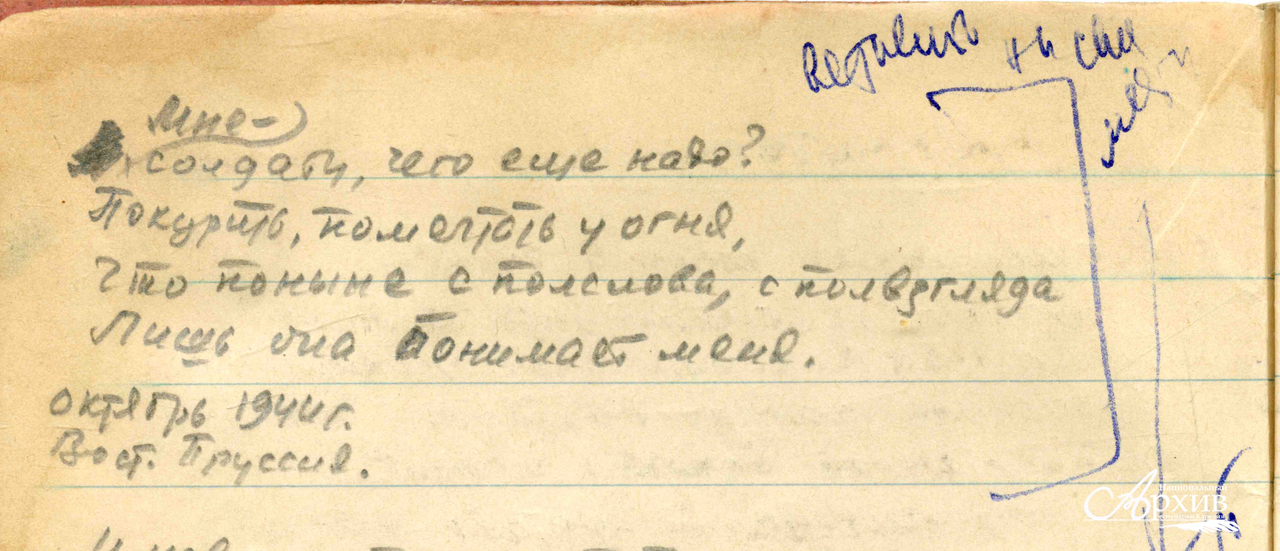 Мне-
солдату, чего еще надо?
Покурить, помечтать у огня,
Что поныне с полслова, с полвзгляда
Лишь она понимает меня.
октябрь 1944г.
Вост. Пруссия.
Архив